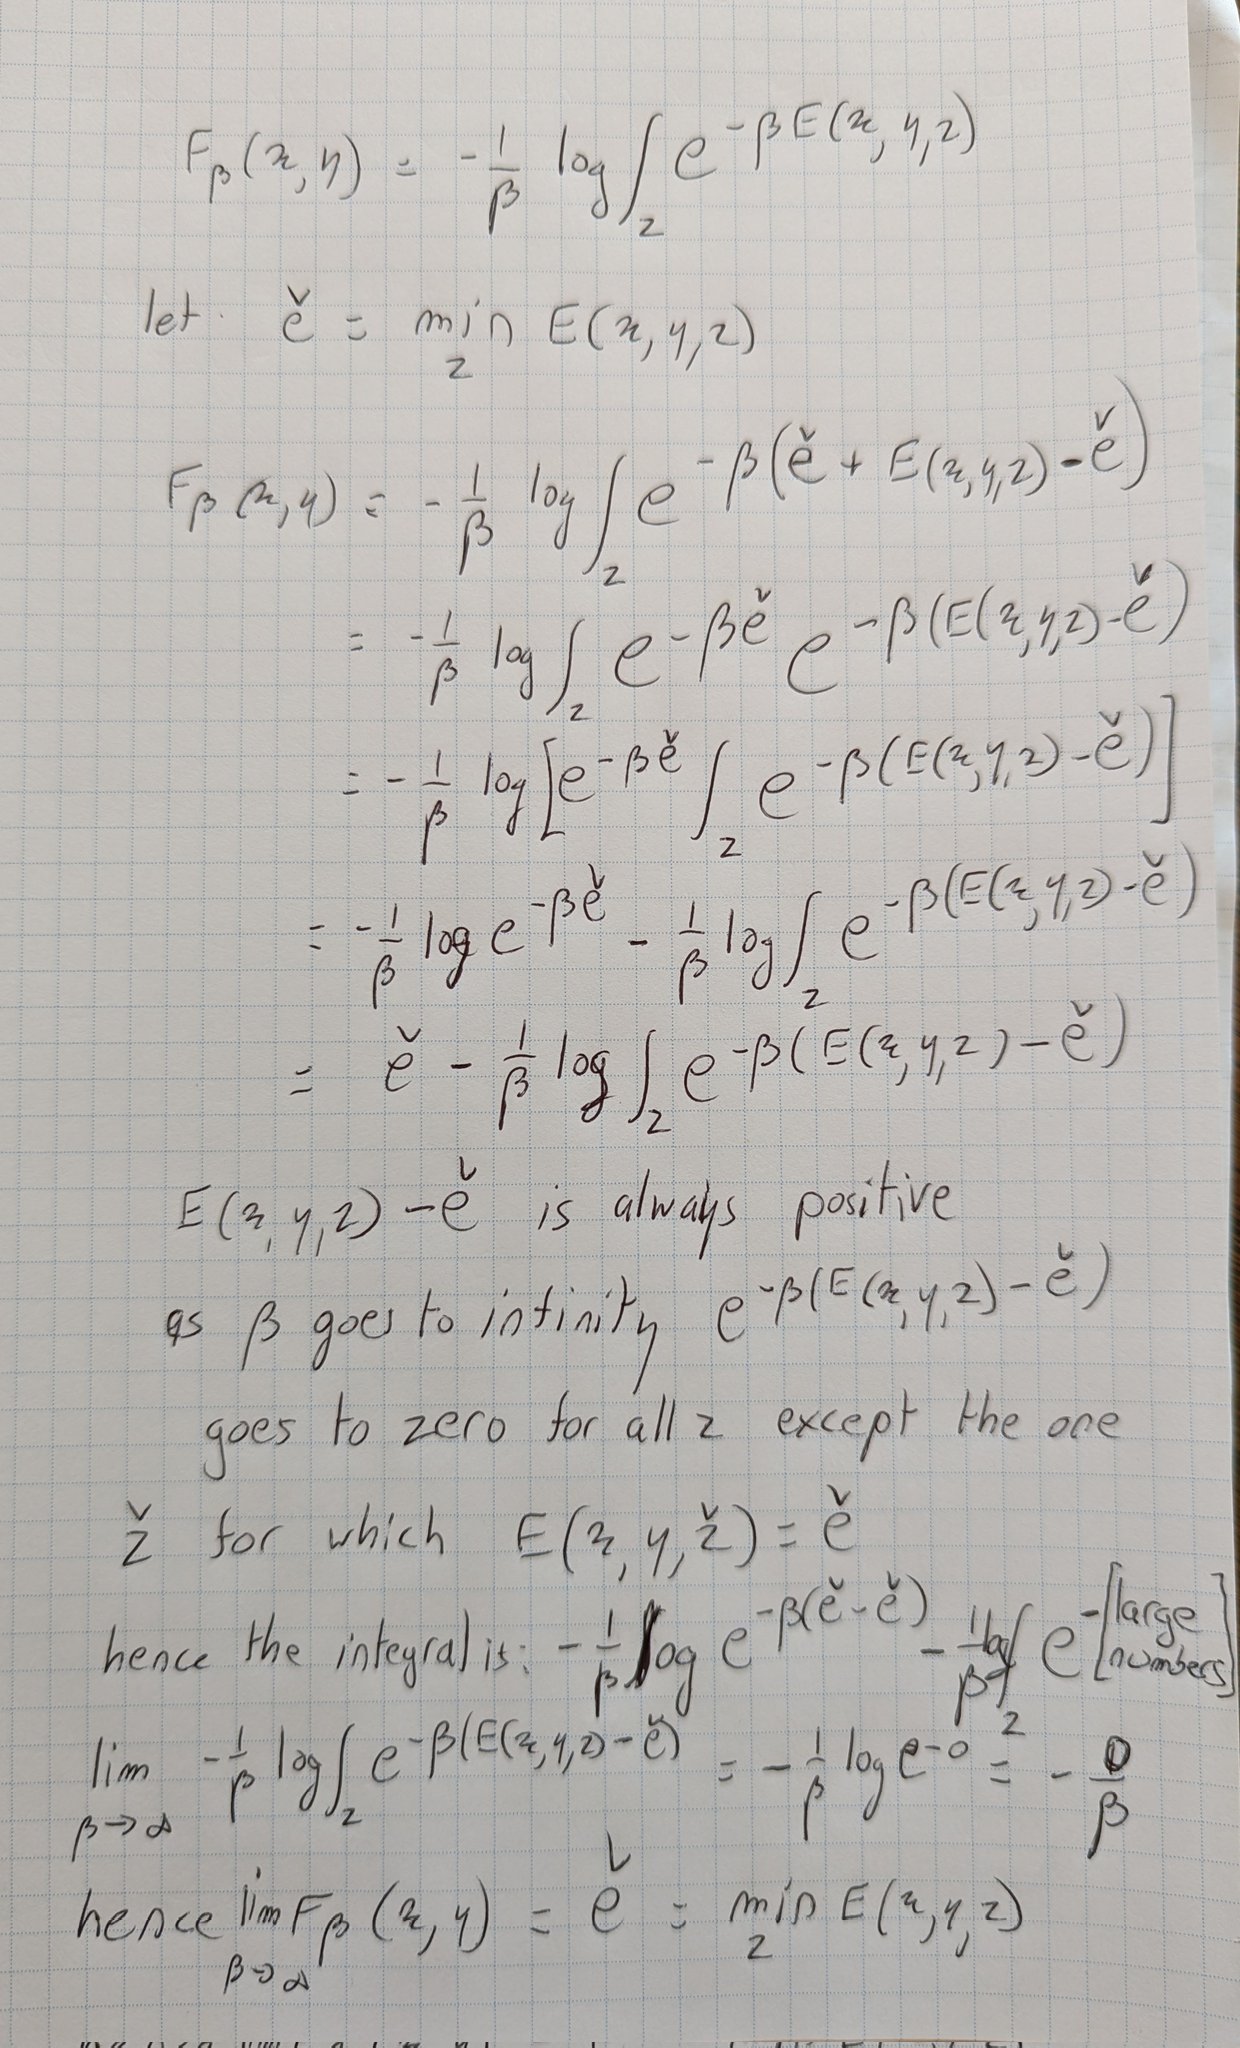 F_β(x,y) = -1/β log ∫_z e^{-βE(x,y,z)}
let ě = min_z E(x,y,z)
F_β(x,y) = -1/β log ∫_z e^{-β(ě + E(x,y,z) - ě)}
= -1/β log ∫_z e^{-βě} e^{-β(E(x,y,z) - ě)}
= -1/β log [e^{-βě} ∫_z e^{-β(E(x,y,z) - ě)}]
= -1/β log e^{-βě} - 1/β log ∫_z e^{-β(E(x,y,z) - ě)}
= ě - 1/β log ∫_z e^{-β(E(x,y,z) - ě)}
E(x,y,z) - ě is always positive
as β goes to infinity e^{-β(E(x,y,z) - ě)}
goes to zero for all z except the one
ž for which E(x,y,ž) = ě
hence the integral is: -1/β log e^{-β(ě-ě)} - 1/β log ∫_z e^{-[large numbers]}
lim_{β→∞} -1/β log ∫_z e^{-β(E(x,y,z) - ě)} = -1/β log e^{-0} = -0/β
hence lim_{β→∞} F_β(x,y) = ě = min_z E(x,y,z)